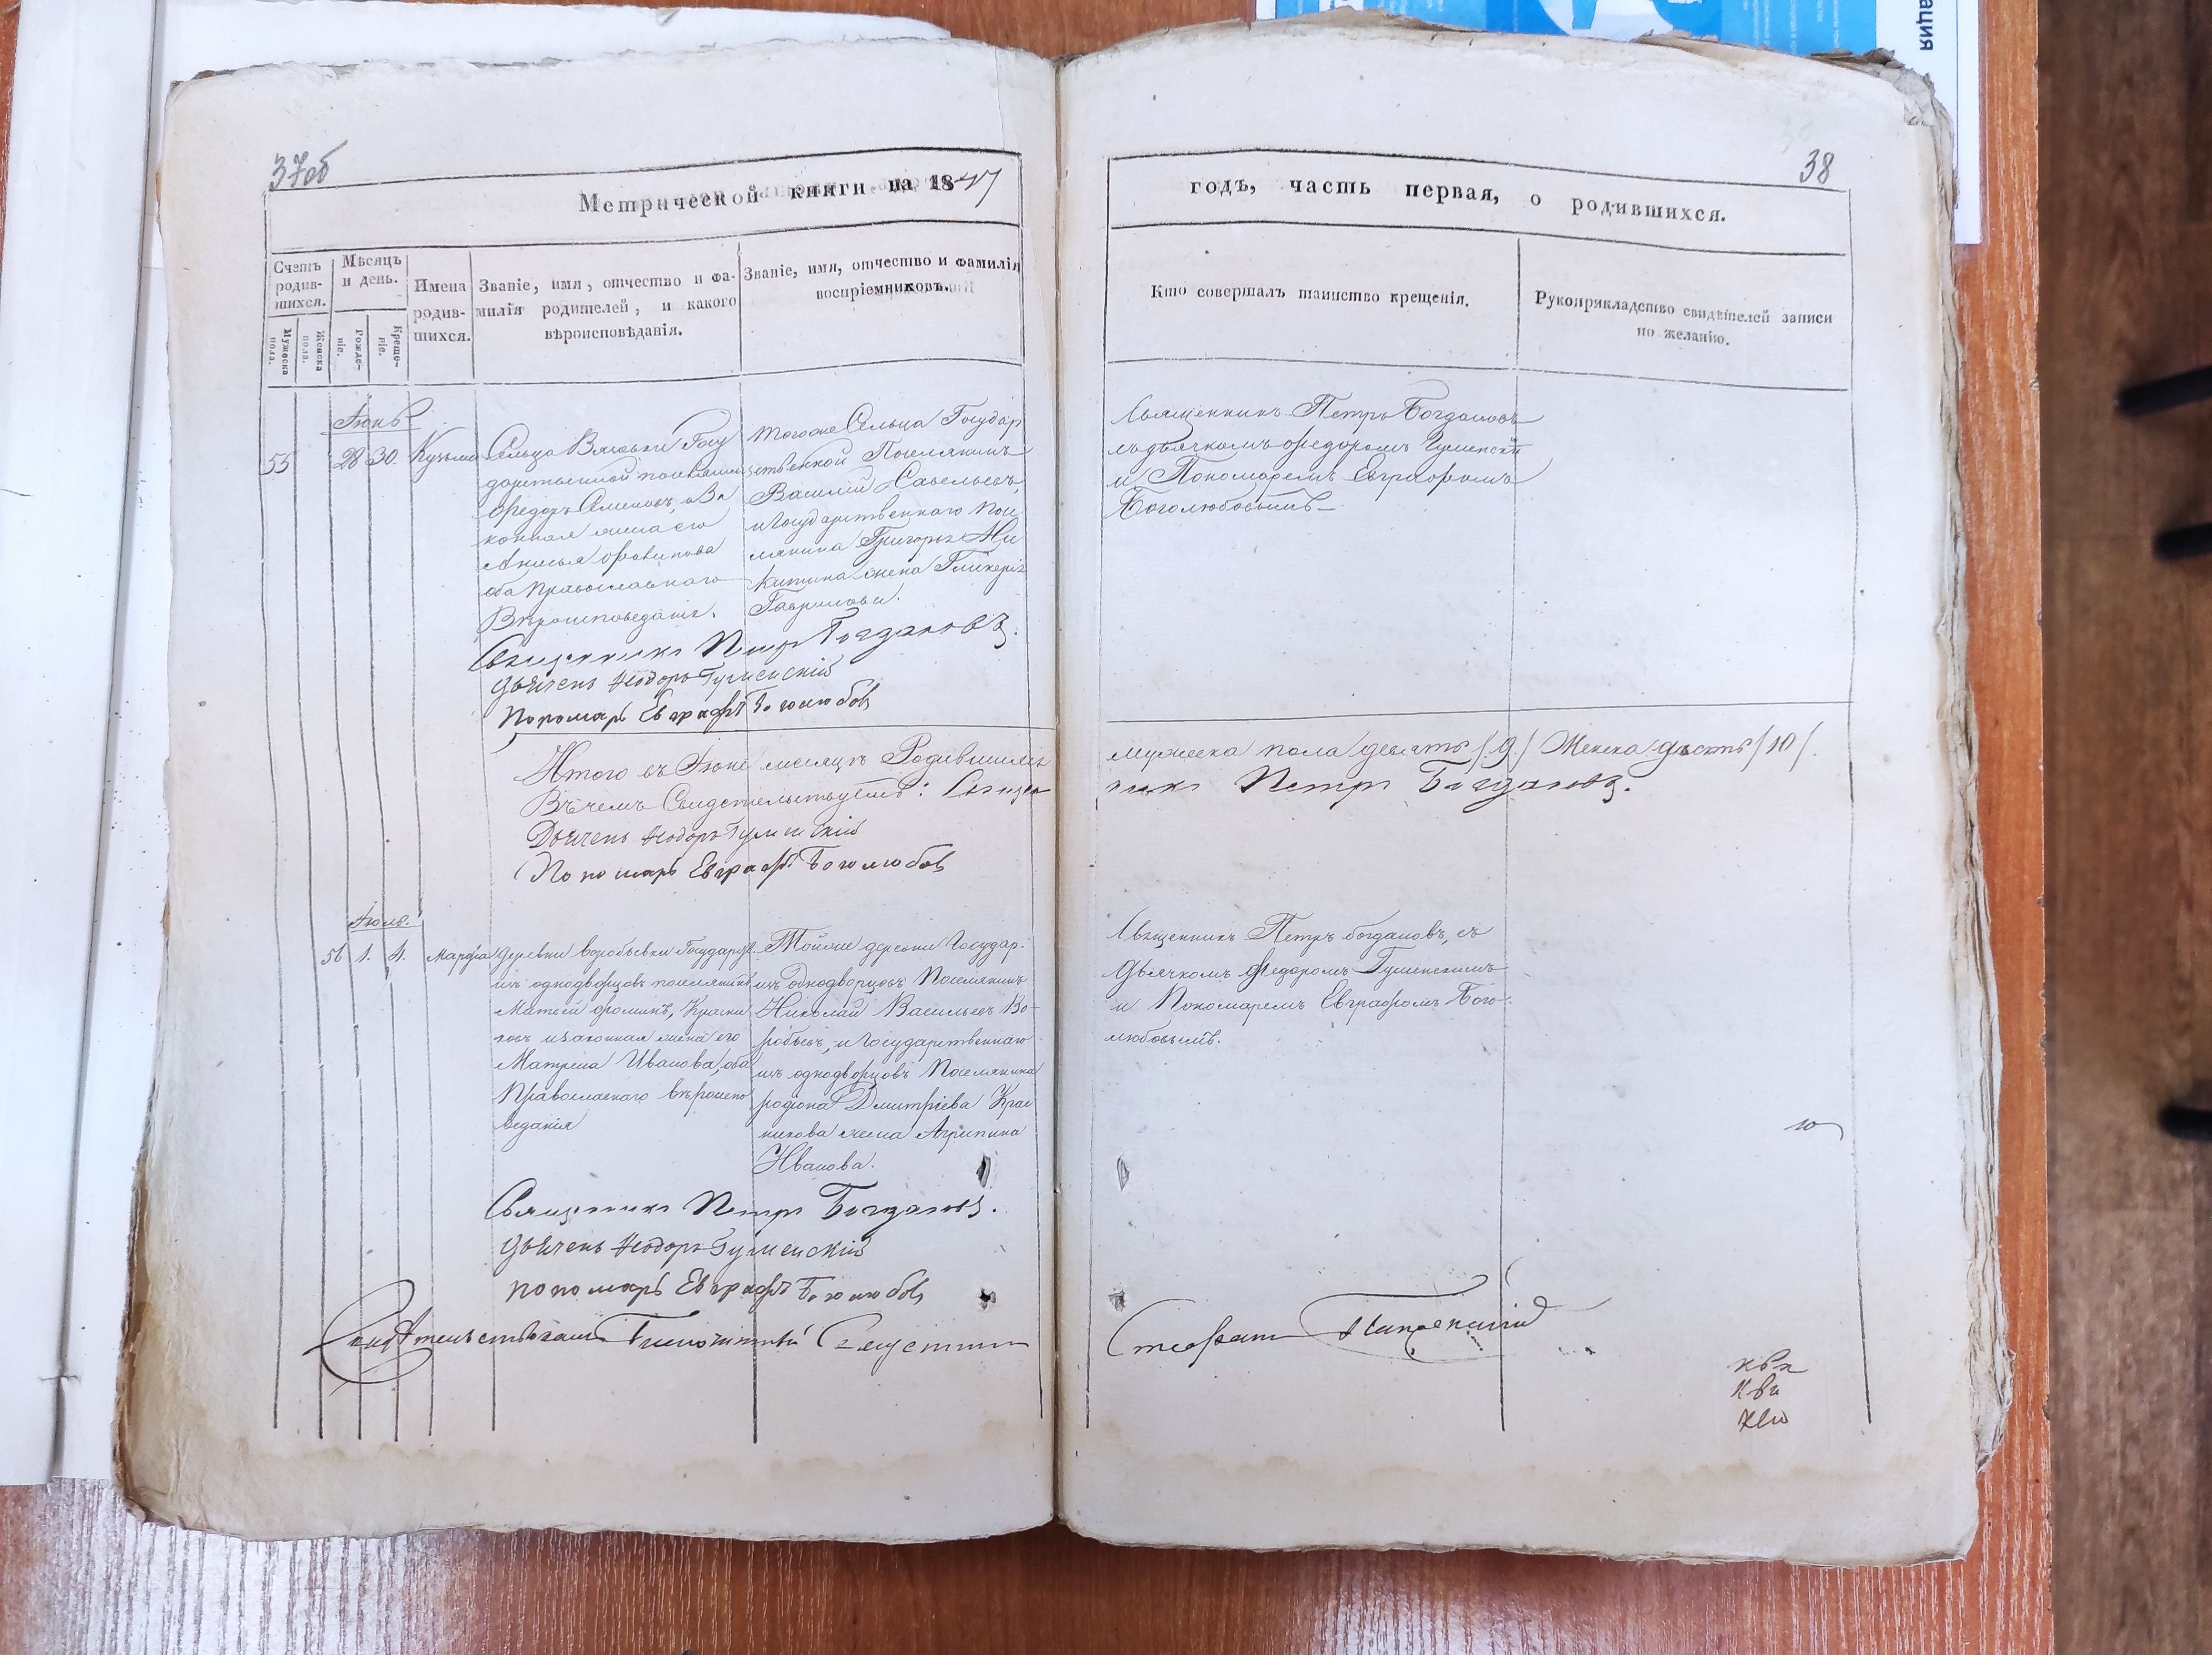 ация
37об
38
Метрической книги на 1847
годъ, часть первая, о родившихся.
Счетъ родив-шихся.
Мужеска пола.
Женска пола.
Мѣсяцъ и день.
Рожде-ніе.
Креще-ніе.
Имена родив-шихся.
Званіе, имя, отчество и фа-
милія родителей, и какого
вѣроисповѣданія.
Званіе, имя, отчество и фамилія
воспріемниковъ.
Кто совершалъ таинство крещенія.
Рукоприкладство свидѣтелей записи
по желанію.
Іюнь
55
28
30.
Кузьма
Сельца Вязовки Госу
дарственной поселянинъ
Федоръ Семеновъ, и За
конная жена его
оба Православнаго
Вѣроисповеданія.
тогоже Сельца Государ
ственной Поселянинъ
Василий Савельевъ,
и Государственнаго Посе
лянина Григорья Ни
китина жена Гликерія
Гаврилова.
Священникъ Петръ Богдановъ
съ дьячкомъ Федоромъ Гуменским
и Пономаремъ Евграфомъ
Боголюбовымъ
Священникъ Петръ Богдановъ.
Дьячекъ Ѳеодоръ Гуменскій
Пономарь Евграфъ Боголюбовъ
Итого въ Іюне месяцѣ Родившихся
мужеска пола девять /9/ Женска десять /10/.
Въ чемъ Свидетельствуемъ: Священ
никъ Петръ Богдановъ.
Дьячекъ Ѳеодоръ Гуменскій
Пономарь Евграфъ Боголюбовъ
Іюль.
56
1.
4.
Марфа
деревни Воробьевки Государст.
изъ однодворцовъ поселянинъ
Матвей Фоминъ, Красни
ковъ и законная жена его
Матрена Иванова, оба
Православнаго вѣроиспо
ведания
Тойже деревни Государ.
изъ Однодворцовъ Поселянинъ
Николай Васильевъ Во-
робьевъ, и Государственнаго
изъ однодворцовъ Поселянина
родіона Дмитріева Крас
никова жена Агрипина
Иванова.
Священникъ Петръ Богдановъ, съ
дьячкомъ Федоромъ Гуменскимъ
и Пономаремъ Евграфомъ Бого-
любовымъ.
Священникъ Петръ Богдановъ.
Дьячекъ Ѳеодоръ Гуменскій
пономарь Евграфъ Боголюбовъ
Свидѣтельствовалъ
Стефанъ